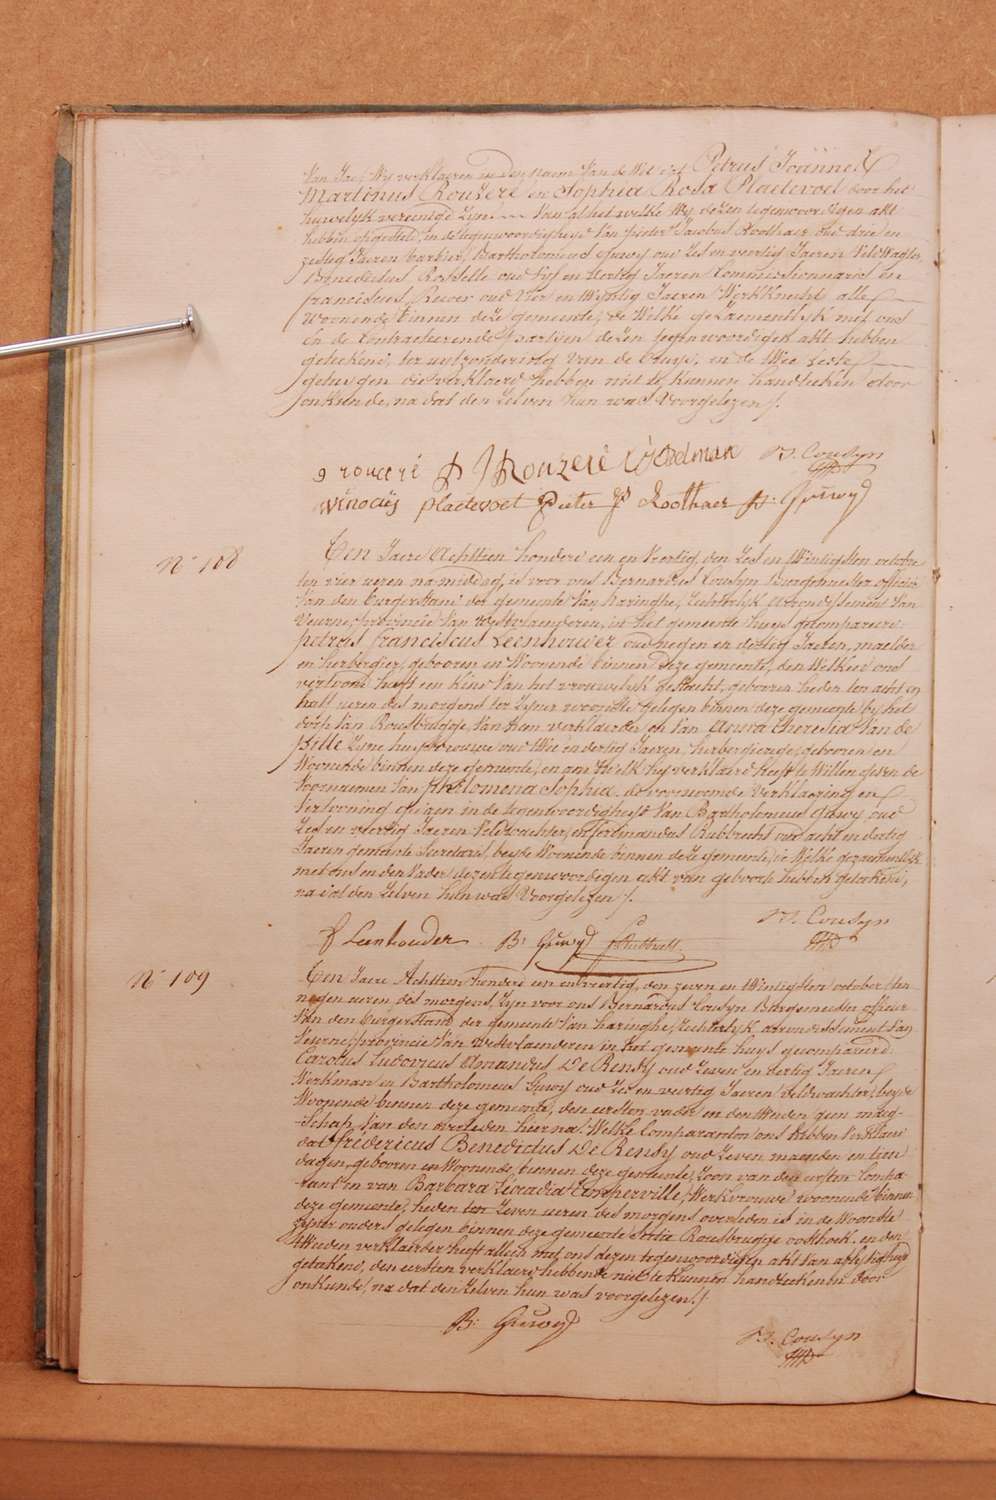 Van Jae, Wij verklaeren in den naem Van de Wet dat Petrus Joännes
Martinus Rouzeré en Sophia Rosa Plaetevoet door het
huwelyk vereenigd Zijn. --- Van al het welke Wij dezen tegenwoordigen akt
hebben opgesteld, in de tegenwoordigheyd Van pieter Jacobus Roothaer oud drie en
zestig Jaeren barbier, Bartholomeus Guwy oud Zes en veertig Jaeren Veld Wagter,
Benedictus Rosselle oud Vyf en Veertig Jaeren Commissionnaris en
franciscus oud Vier en Jaeren Werkknecht alle
woonende binnen deze gemeente, de Welke gezaementlyk met ons
en de Contracteerende partyen dezen tegenwoordigen akt hebben
geteekend, ter uytzondering van de bruyd, en de twee leste
getuygen die verklaerd hebben niet te kunnen handteeken door
onkunde, na dat den Zelven hun was Voorgelezen /.
g rouceré P J Rouzeré B. Cousyn
winocüs plaetevoet Pieter Js Roothaer B: Guwÿ
N° 108
Een Jaere Achttien honderd een en Veertig, den Zes en twintigsten octobre
ten vier ueren na middag, is voor ons Bernardus Cousyn Burgemeester officier
Van den burgerstand der gemeente Van haringhe, Rechterlyk arrondissement Van
Veurne, provincie Van Westvlaenderen, in het gemeente huys gecompareerd
petrus franciscus Leenhouwer oud negen en dertig Jaeren, maelder
en herbergier, gebooren en Woonende binnen deze gemeente, den Welken ons
vertoond heeft een kind Van het vrouwelyk geslacht, gebooren heden ten acht en
half ueren des morgens ter Zynen woonste gelegen binnen deze gemeente by het
dorp Van Rousbrugge, Van hem verklaerder en Van Anna Theresia Van de
Pitte Zyne huysvrouwe oud twee en dertig Jaeren, herbergierege, gebooren en
Woonende binnen deze gemeente, en aen Welk hy verklaerd heeft te Willen geven de
Voornaemen Van philomena Sophia, de voornoemde Verklaering en
Vertooning gedaen in de tegenwoordigheyd Van Bartholomeus Guwy oud
Zes en veertig Jaeren Veldwachter, en ferdinandus Rubbrecht oud acht en dertig
Jaeren gemeente Secretaris, beyde Woonende binnen deze gemeente, de Welke gezaementlyk
met ons en den Vader dezen tegenwoordigen akt van geboorte hebben geteekend,
na dat den Zelven hun was Voorgelezen /.
B. Cousyn
p Leenhouder B: Guwÿ f Rubbrecht
N° 109
Een Jaere Achttien honderd een en veertig, den zeven en twintigsten october ten
negen ueren des morgens, Zyn voor ons Bernardus Cousyn Burgemeester officier
Van den burgerstand der gemeente Van haringhe, Rechterlyk arrondissement Van
Veurne, provincie Van Westvlaenderen in het gemeente huys gecompareerd
Carolus Ludovicus Amandus De Rensy oud Zeven en dertig Jaeren
Werkman en Bartholomeus Guwy oud Zes en veertig Jaeren Veldwachter, beyde
Woonende binnen deze gemeente, den eersten vader en den tweeden geen maeg-
-schap Van den overleden hier na. Welke Comparanten ons hebben Verklaerd
dat fridericus Benedictus De Rensy oud Zeven maenden en tien
dagen, gebooren en Woonende binnen deze gemeente, Zoon van den eersten Compa-
-rant en van Barbara Leocadia Timperville, Werkvrouwe woonende binnen
deze gemeente, heden ten Zeven ueren des morgens overleden is in de Woonste
Zyner ouders gelegen binnen deze gemeente Sectie Rousbrugge oosthoek. en den
tweeden verklaerder heeft alleen met ons dezen tegenwoordigen akt Van aflyvigheyd
geteekend, den eersten verklaerd hebbende niet te kunnen handteekenen door
onkunde, na dat den Zelven hun was voorgelezen /.
B: Guwÿ
B. Cousyn